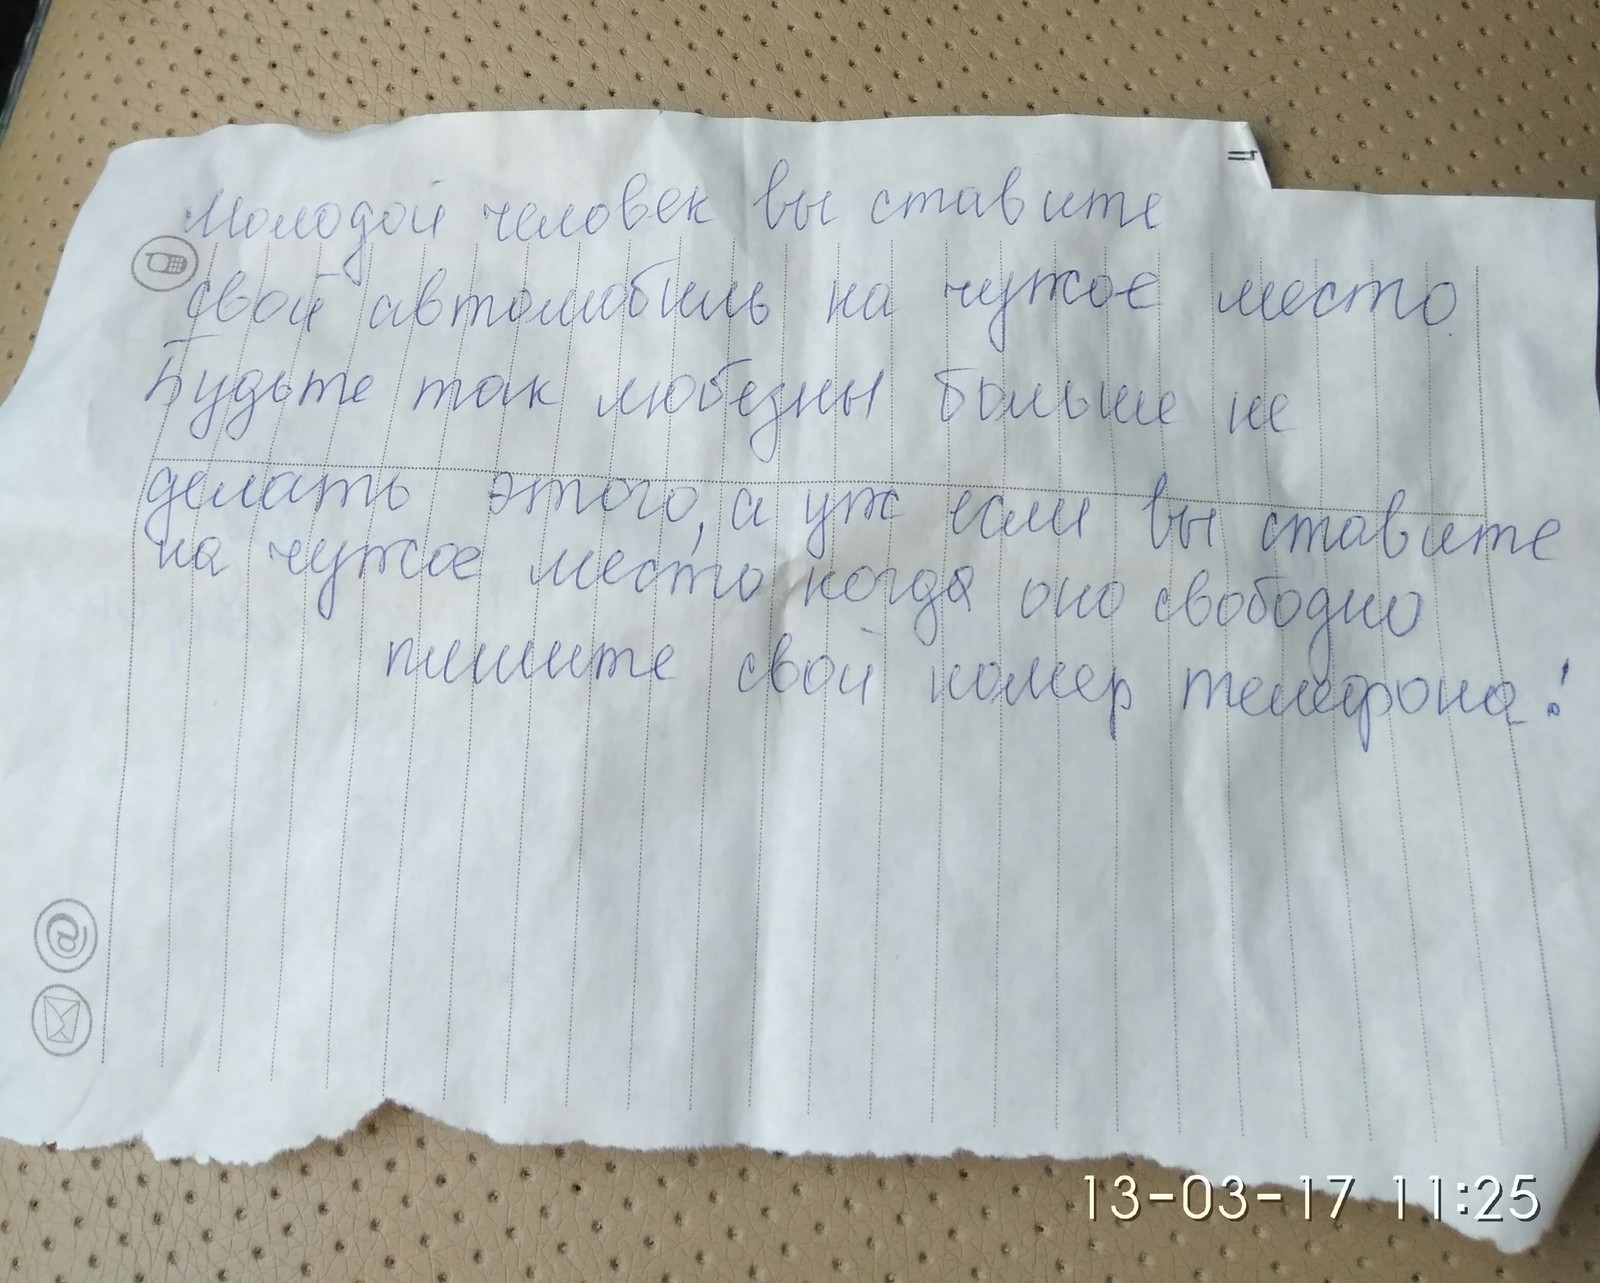 Молодой человек вы ставите
свой автомобиль на чужое место.
Будьте так любезны больше не
делать этого, а уж если вы ставите
на чужое место когда оно свободно
пишите свой номер телефона!
13-03-17 11:25